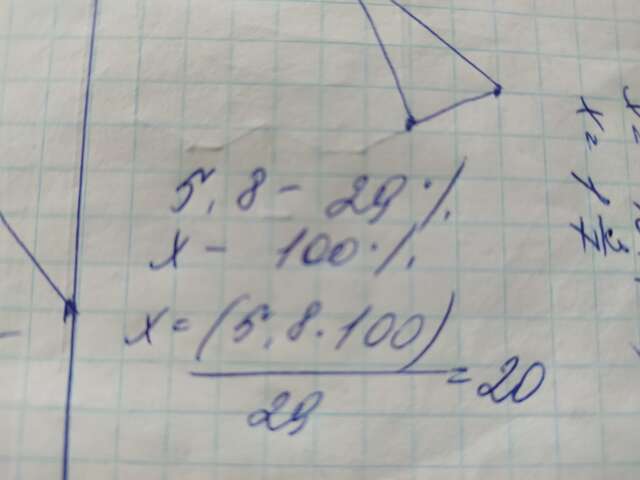 5,8 - 29%
x - 100%
x = (5,8·100)
29
= 20
x =
x = 1 3/7